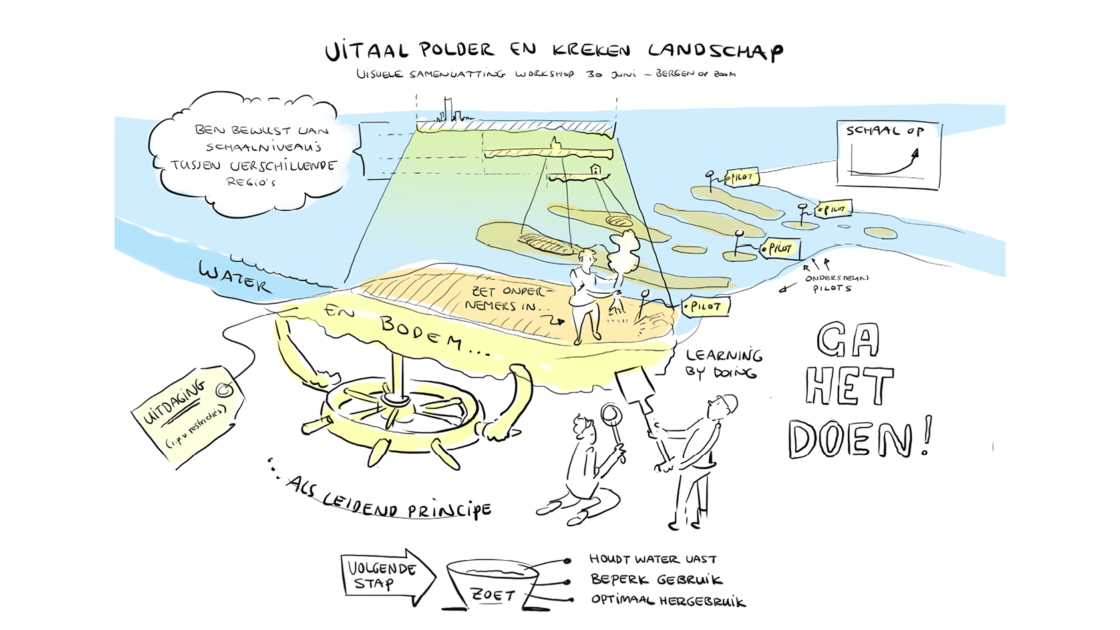 VITAAL POLDER EN KREKEN LANDSCHAP
VISUELE SAMENVATTING WORKSHOP 30 JUNI - BERGEN OP ZOOM
BEN BEWUST VAN
SCHAALNIVEAU'S
TUSSEN VERSCHILLENDE
REGIO'S
SCHAAL OP
PILOT
PILOT
PILOT
ONDERSTEUN
PILOTS
WATER
ZET ONDER-
NEMERS IN...
PILOT
EN BODEM...
LEARNING
BY DOING
GA
HET
DOEN!
UITDAGING
(i.p.v restricties)
...ALS LEIDEND PRINCIPE
VOLGENDE
STAP
ZOET
HOUDT WATER VAST
BEPERK GEBRUIK
OPTIMAAL HERGEBRUIK